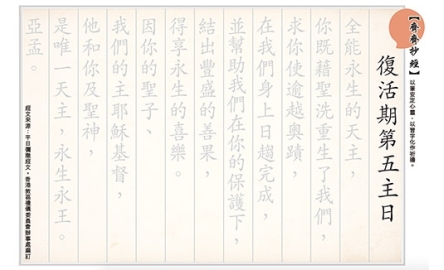 【齊齊抄經】
以筆安定心靈，以習字化作祈禱。
復活期第五主日
全能永生的天主，
你既藉聖洗重生了我們，
求你使逾越奧蹟，
在我們身上日趨完成，
並幫助我們在你的保護下，
結出豐盛的善果，
得享永生的喜樂。
因你的聖子、
我們的主耶穌基督，
他和你及聖神，
是唯一天主，永生永王。
亞孟。
經文來源：平日彌撒經文，香港教區禮儀委員會辦事處編訂